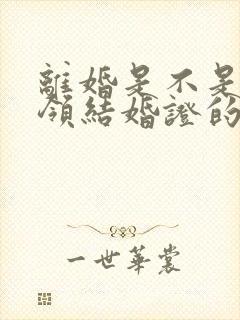 離婚是不是
領結婚證的
一世華裳